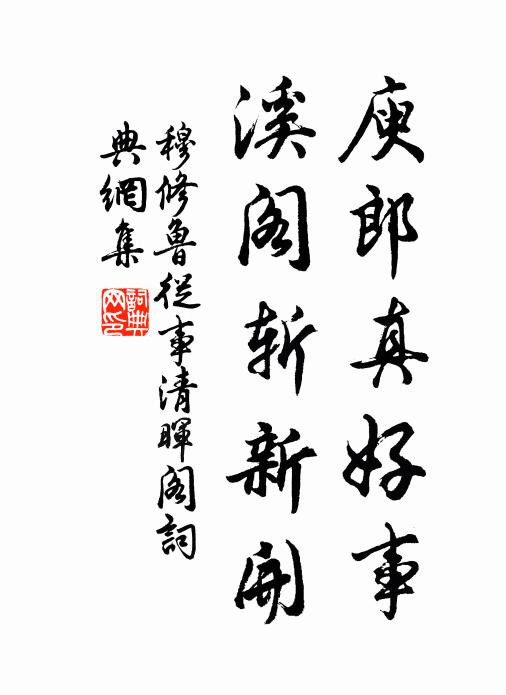 庾郎真好事
溪阁斩新開
穆修魯從事清暉阁詞
典網集
詞典
网印